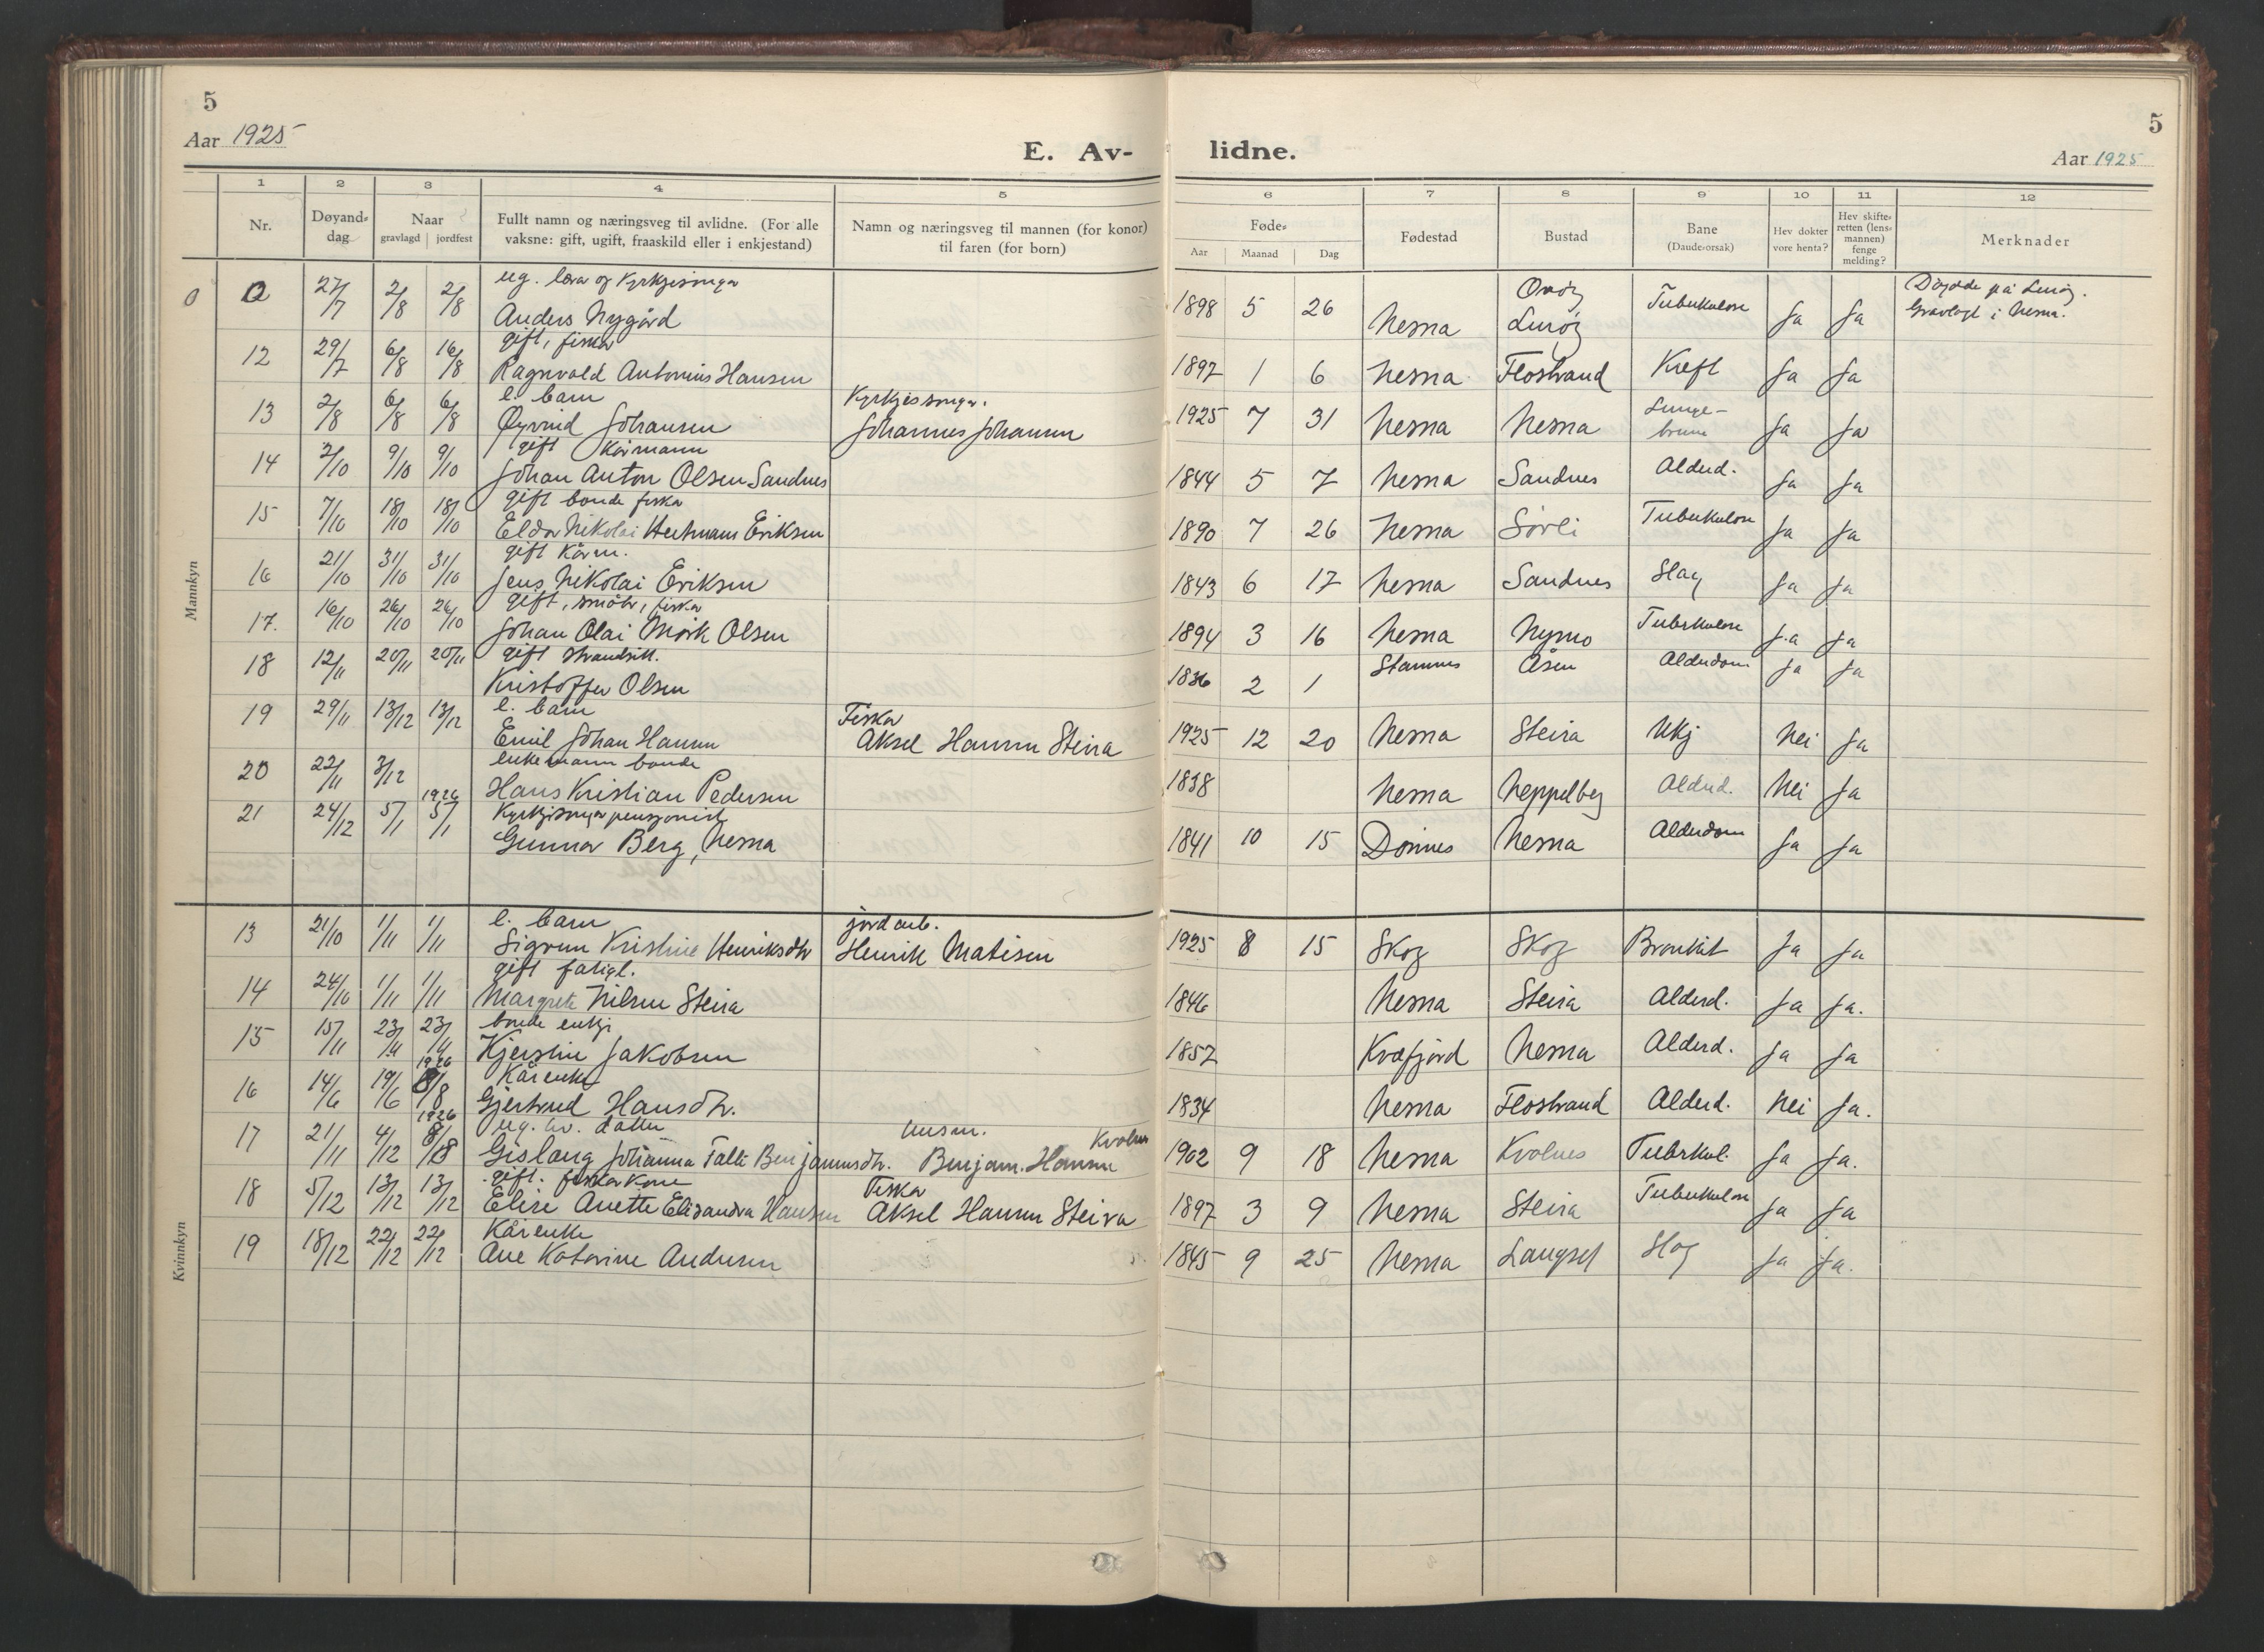 5
Aar 1925
E. Av-
1 2 3 4 5
Nr.
Døyand-dag
Naar
gravlagd | jordfest
Fullt namn og næringsveg til avlidne. (For alle
vaksne: gift, ugift, fraaskild eller i enkjestand)
Namn og næringsveg til mannen (for konor)
til faren (for born)
Mannkyn
0 0 27/7 2/8 2/8 ug. lærar og Kyrkjesongar
Anders Nygård
12 29/7 6/8 16/8 gift, fiskar
Ragnvald Antonius Hansen
13 2/8 6/8 6/8 e. barn Kyrkjesongar.
Øyvind Johansen Johannes Johansen
14 2/10 9/10 9/10 gift Kårmann
Johan Anton Olsen Sandnes
15 7/10 18/10 18/10 gift bonde fiskar
Eldor Nikolai Hertmann Eriksen
16 21/10 31/10 31/10 gift Kårm.
Jens Nikolai Eriksen
17. 16/10 26/10 26/10 gift, småbr, fiskar
Johan Olai Mørk Olsen
18 12/11 20/11 20/11 gift strandsitt.
Kristoffer Olsen
19 29/11 13/12 13/12 e. barn Fiskar
Emil Johan Hansen Aksel Hansen Steira
20 22/11 3/12 enkemann bonde
Hans Kristian Pedersen
21 24/12 5/1 1926 5/1 Kyrkjesongar pensjonist
Gunnar Berg, Nesna
Kvinnkyn
13 21/10 1/11 1/11 e. barn jordarb.
Sigrun Kristine Henriksdtr Henrik Matisen
14 24/10 1/11 1/11 gift fatigl.
Margrete Nilsen Steira
15 15/11 23/11 23/11 bonde enkje
Kjerstin Jakobsen
16 14/6 19/6 1926 8/8 Kårenke
Gjertrud Hansdtr.
17 21/11 4/12 1926 ug. hv. datter husm. Kvolnes
Gislaug Johanna Falk Benjaminsdtr. Benjam. Hansen
18 5/12 13/12 13/12 gift. fiskarkone Fiskar
Elise Anette Elisandra Hansen Aksel Hansen Steira
19 18/12 22/12 22/12 Kårenke
Ane Katarine Andersen
5
Aar 1925
lidne.
6 7 8 9 10 11 12
Føde-
Aar | Maanad | Dag
Fødestad
Bustad
Bane
(Daude-orsak)
Hev dokter
vore henta?
Hev skifte-
retten (lens-
mannen)
fenge
melding?
Merknader
1898 5 26 Nesna Onøy Lurøy Tuberkulose Ja Ja Døydde på Lurøy.
Gravlagt i Nesna.
1897 1 6 Nesna Flostrand Kreft Ja Ja
1925 7 31 Nesna Nesna Lunge-
Ja Ja
1844 5 7 Nesna Sandnes Alderd. Ja Ja
1890 7 26 Nesna Sørli Tuberkulose Ja Ja
1843 6 17 Nesna Sandnes Slag Ja Ja
1894 3 16 Nesna Nymo Tuberkulose Ja Ja
1836 2 1 Stamnes Åsen Alderdom Ja Ja
1925 12 20 Nesna Steira Ukj Nei Ja
1838 Nesna Neppelberg Alderd. Nei Ja
1841 10 15 Dønnes Nesna Alderdom Ja Ja
1925 8 15 Skog Skog Bronkit Ja Ja
1846 Nesna Steira Alderd. Ja Ja.
1857 Kvæfjord Nesna Alderd. Ja Ja
1834 Nesna Flostrand Alderd. Nei Ja.
1902 9 18 Nesna Kvolnes Tuberkul. Ja Ja.
1897 3 9 Nesna Steira Tuberkulose Ja Ja
1845 9 25 Nesna Langset Slag Ja Ja.